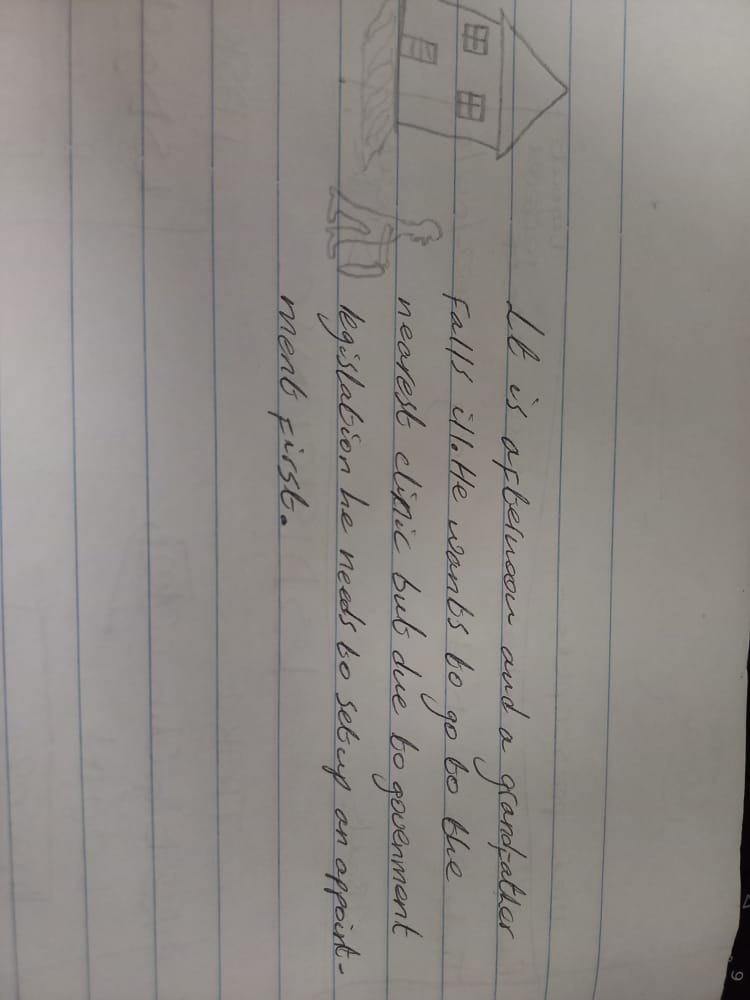 It is afternoon and a grandfather
falls ill. He wants to go to the
nearest clinic but due to government
legislation he needs to setup an appoint-
ment first.